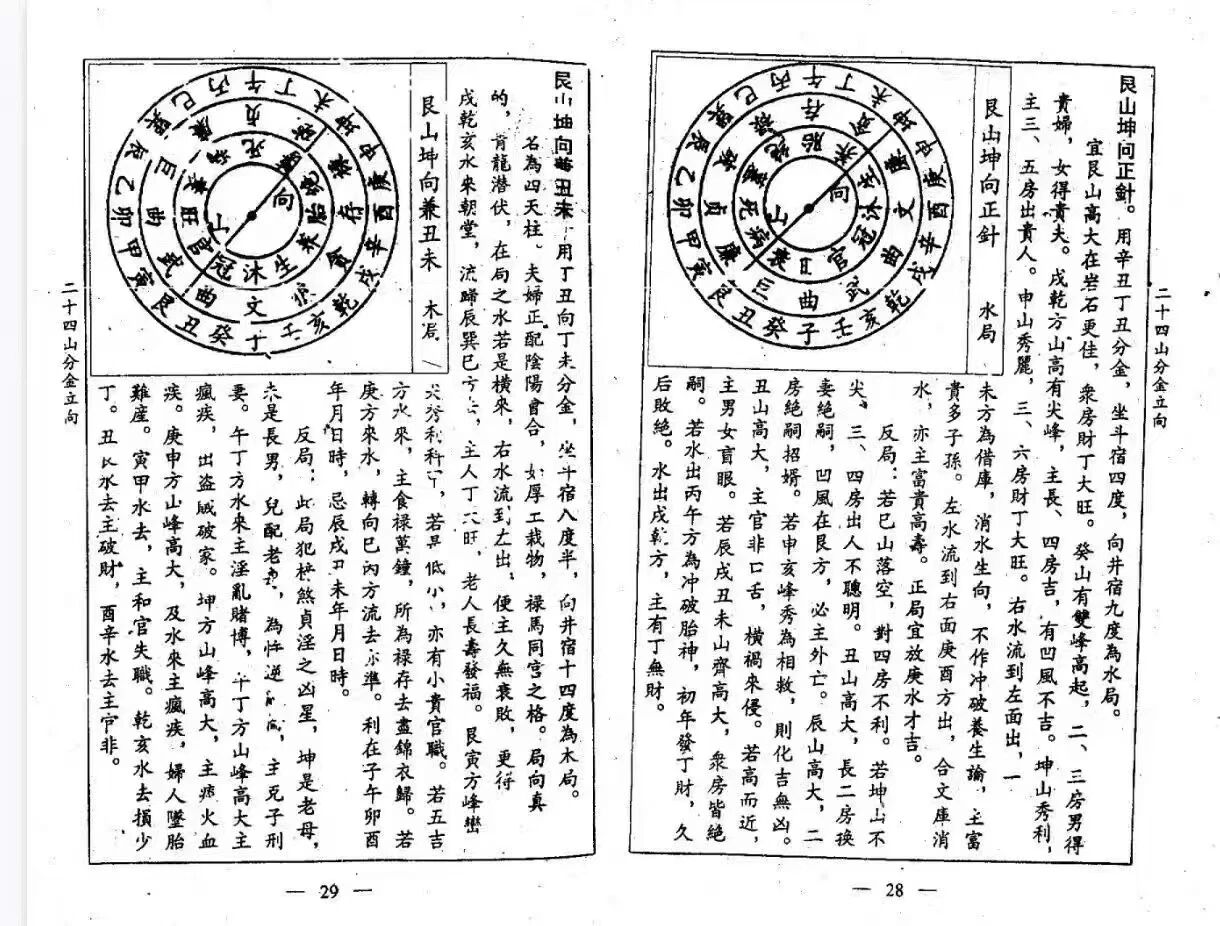 二十四山分金立向
艮山坤向正針。用辛丑丁丑分金，坐斗宿四度，向井宿九度為水局。
宜艮山高大在岩石更佳，衆房財丁大旺。癸山有雙峰高起，二、三房男得
貴婦，女得貴夫。戌乾方山高有尖峰，主長、四房吉，有凹風不吉。坤山秀利，
主三、五房出貴人。申山秀麗，三、六房財丁大旺。右水流到左面出，一
艮山坤向正針　水局
未方為借庫，消水生向，不作冲破養生論，主富
貴多子孫。左水流到右面庚酉方出，合文庫消
水，亦主富貴高壽。正局宜放庚水才吉。
反局：若巳山落空，對四房不利。若坤山不
尖，三、四房出人不聰明。丑山高大，長二房換
妻絶嗣，凹風在艮方，必主外亡。辰山高大，二
房絶嗣招婿。若申亥峰秀為相救，則化吉無凶。
丑山高大，主官非口舌，橫禍來侵。若高而近，
主男女盲眼。若辰戌丑未山齊高大，衆房皆絶
嗣。若水出丙午方為冲破胎神，初年發丁財，久
后敗絶。水出戌乾方，主有丁無財。
— 28 —
艮山坤向兼丑未　用丁丑向丁未分金，坐斗宿八度半，向井宿十四度為木局。
名為四天柱、夫婦正配陰陽會合，如厚工栽物，祿馬同宫之格。局向真
的，青龍潜伏，在局之水若是橫來，右水流到左出，便主久無衰敗，更得
戌乾亥水來朝堂，流歸辰巽巳方去，主人丁大旺，老人長壽發福。艮寅方峰巒
艮山坤向兼丑未　木局
尖秀利科甲，若是低小，亦有小貴官職。若五吉
方水來，主食禄萬鐘，所為禄存去盡錦衣歸。若
庚方來水，轉向巳丙方流去亦準。利在子午卯酉
年月日時，忌辰戌丑未年月日時。
反局：此局犯 煞貞淫之凶星，坤是老母，
是長男，兒配老 ，為忤逆 ，主克子刑
要。午丁方水來主淫亂賭博，午丁方山峰高大主
瘋疾，出盗贼破家。坤方山峰高大，主 火血
疾。庚申方山峰高大，及水來主瘋疾，婦人墜胎
難産。寅甲水去，主和官失職。乾亥水去損少
丁。丑艮水去主破財，酉辛水去主官非。
二十四山分金立向
— 29 —